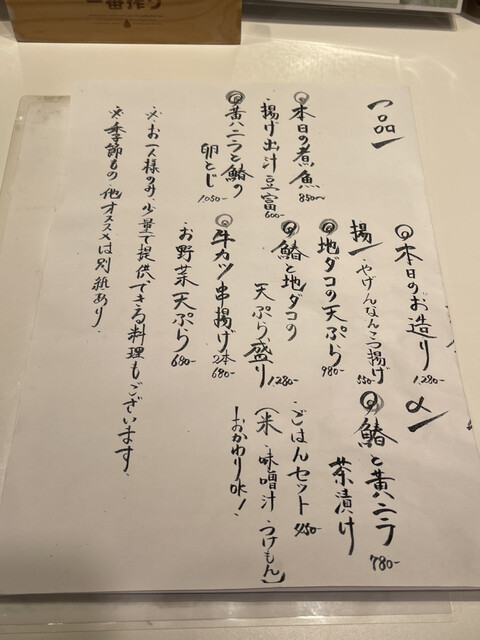 一番搾り
一品ー
◎本日のお造り 1,280-
◎本日の煮魚 850~
・揚げ出汁豆富 600-
◎黄ニラと鰆の
卵とじ 1050-
揚ー
・やげんなんこつ揚げ 550-
◎地ダコの天ぷら 980-
◎鰆と地ダコの
天ぷら盛り 1,280-
◎牛カツ串揚げ 2本 680-
・お野菜天ぷら 680-
〆ー
◎鰆と黄ニラ
茶漬け 780-
・ごはんセット 450-
(米・味噌汁・つけもん)
ーおかわりOK!
※お一人様のみ少量で提供できる料理もございます。
※季節もの・他オススメは別紙あり。